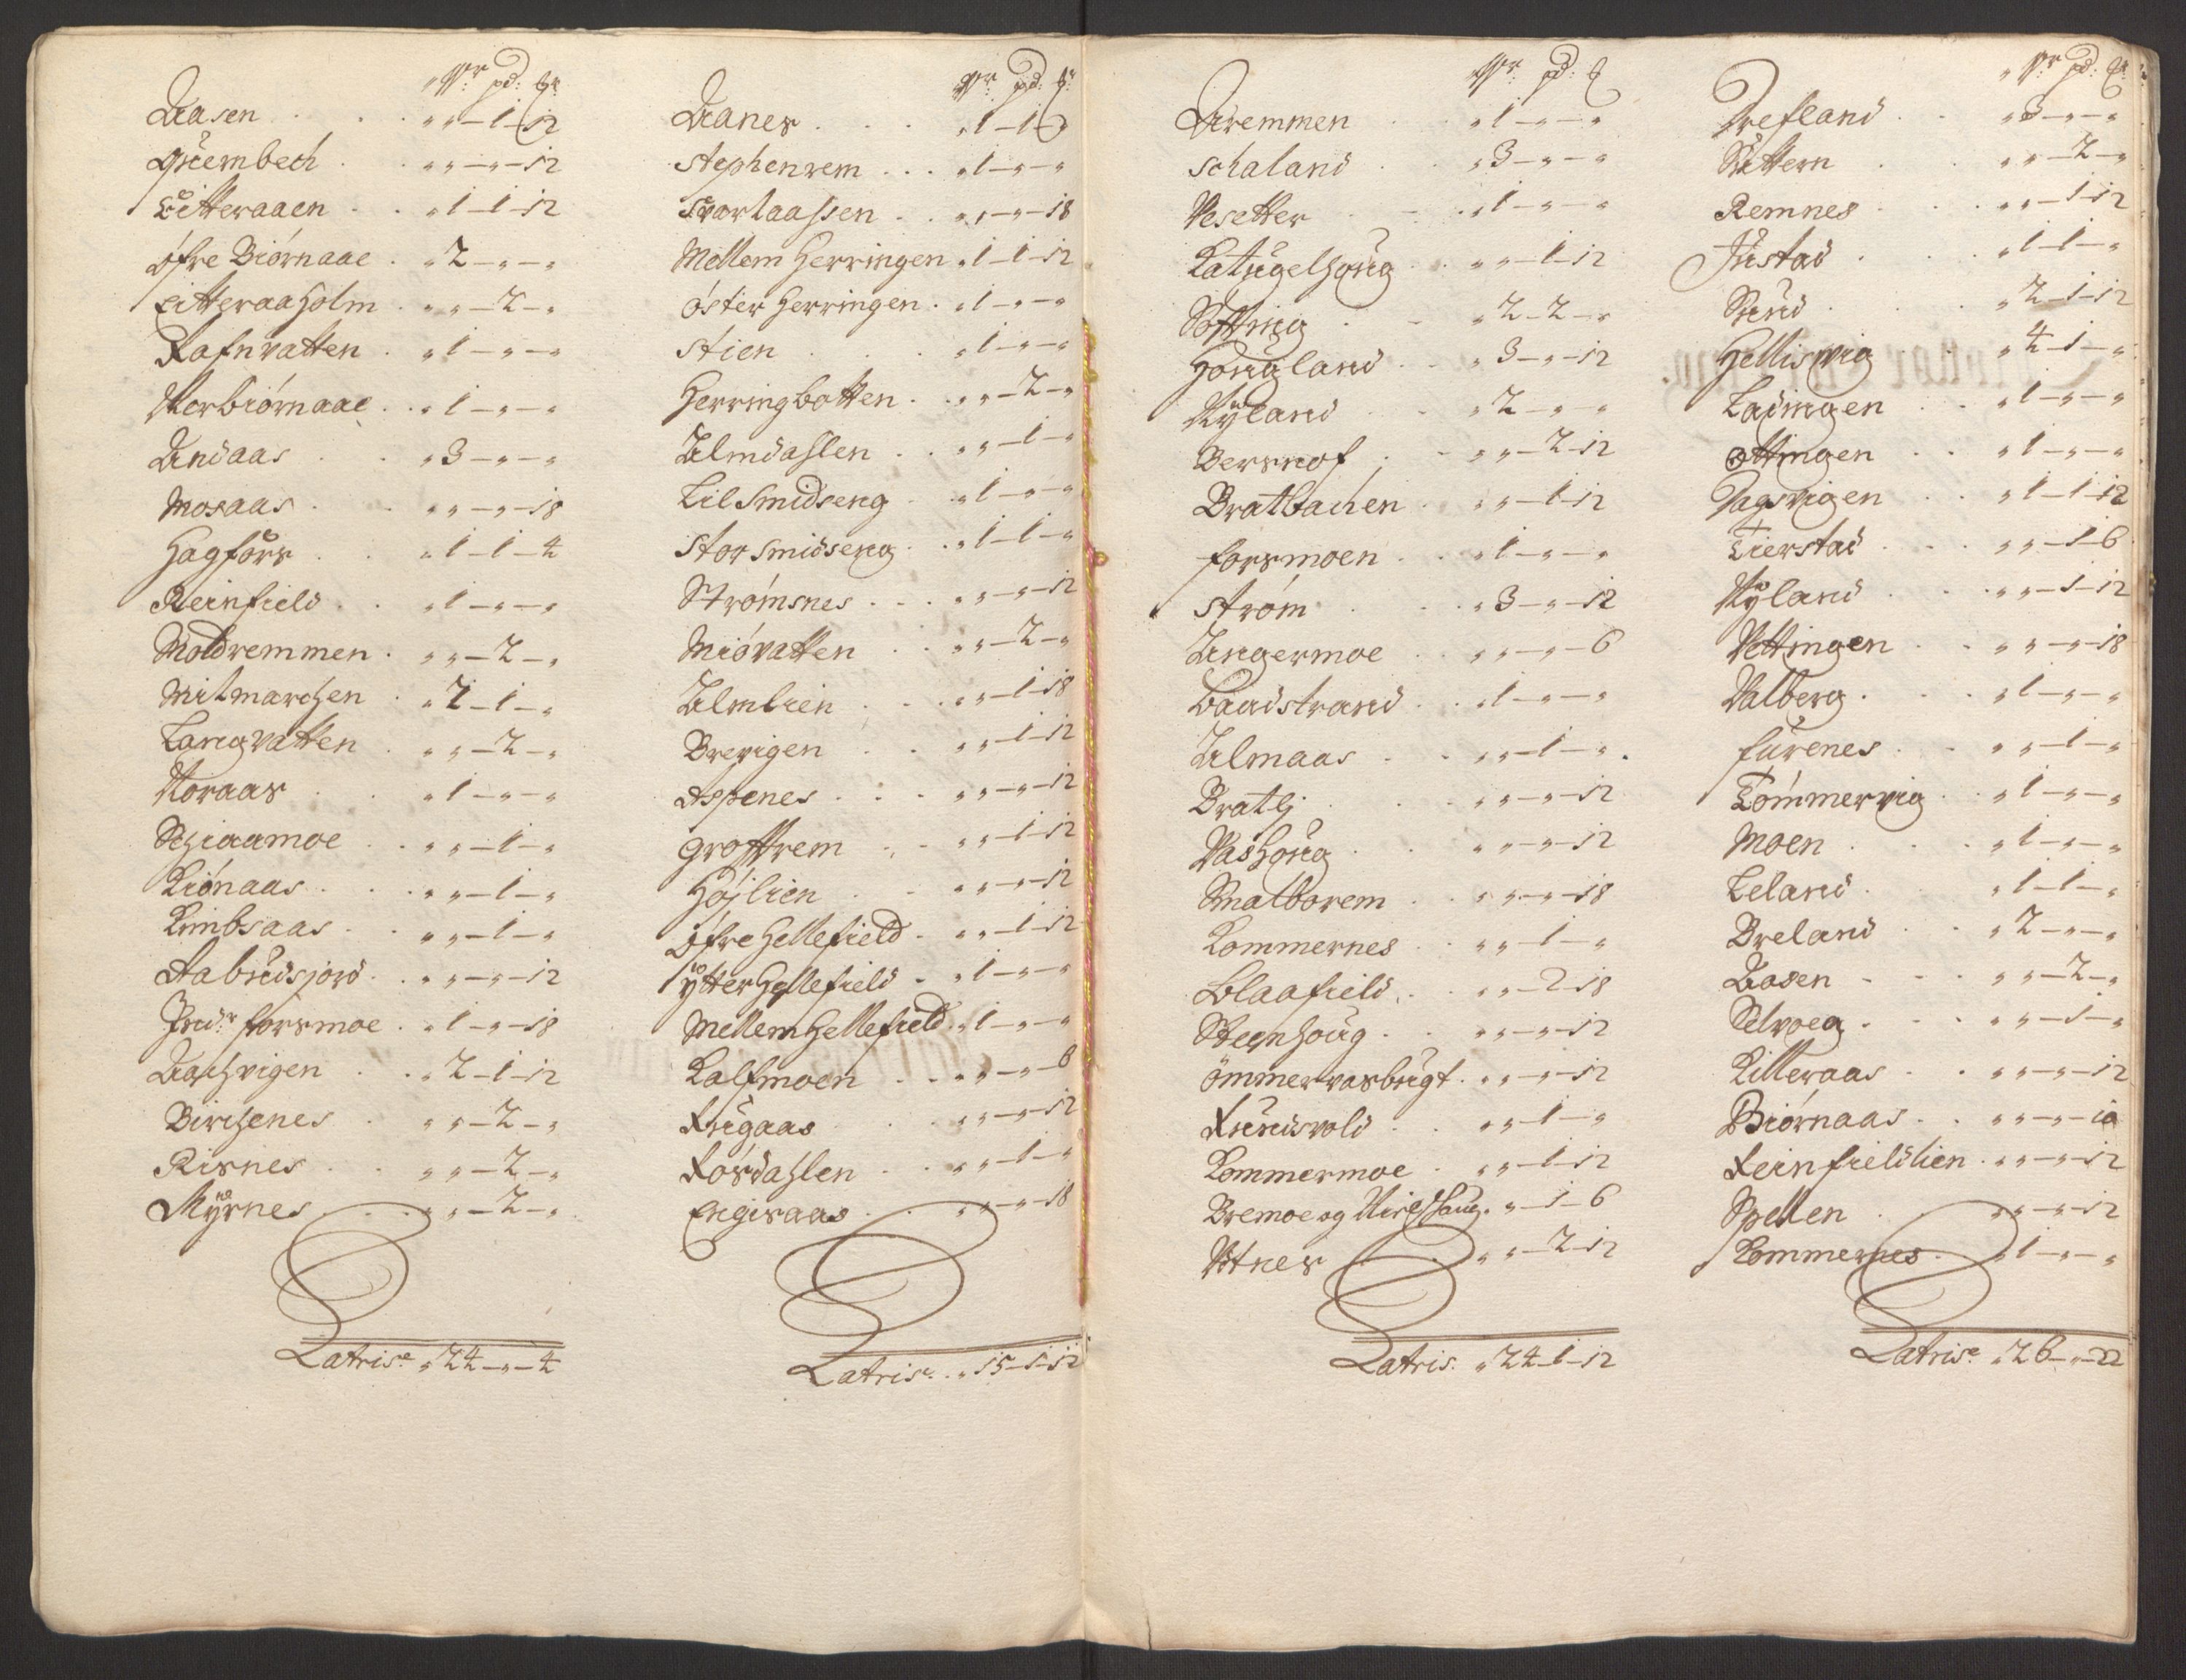 Vr pd: ℔
Aasen . . . „ „ – 1 – 12
Quembech . . „ „ – „ – 12
Litteraaen . . „ 1 – 1 – 12
öfre Biörnaae . „ 2 – „ – „
Litteraaholm . „ „ – 2 – „
Rafnvatten . „ 1 – „ – „
Norbiörnaae . . „ 1 – „ – „
Andaas . . „ 3 – „ – „
Mosaas . . „ „ – „ – 18
Hagfors . . „ 1 – 1 – 4
Reinfield . . „ 1 – „ – „
Moldremmen . „ „ – 2 – „
Milmarchen . „ 2 – 1 – „
Langvatten . „ „ – 2 – „
Noraas . . „ 1 – „ – „
Schiaamoe . . „ „ – 1 – „
Liönaas . . . „ „ – 1 – „
Kimbsaas . . „ „ – 1 – „
Aabudsjord . . „ „ – „ – 12
Indr forsmoe . „ 1 – „ – 18
Aachvigen . . „ 2 – 1 – 12
Birchenes . „ „ – 2 – „
Risnes . . „ „ – 2 – „
Myrnes . . . „ „ – 2 – „
Latris: „ 24 – „ – 4
Vr pd: ℔
Aanes . . . „ 1 – 1 –
Stephenrem . . . „ 1 – „ – „
Svartaassen . . „ „ – „ – 18
Mellem Herringen „ 1 – 1 – 12
öster Herringen . „ 1 – „ – „
Stien . . . „ 1 – „ – „
Herringbotten . „ „ – 2 – „
Almdahlen . . „ „ – 1 – „
Lil Smidseng . „ 1 – „ – „
Stor Smidseng . „ 1 – 1 – „
Strömsnes . . . „ „ – „ – 12
Miövatten . . „ „ – 2 – „
Almlien . . . „ „ – 1 – 18
Brevigen . . „ „ – 1 – 12
Aspenes . . . „ „ – „ – 12
Groffrem . . „ „ – 1 – 12
Höjlien . . „ „ – „ – 12
Öfre Hellefield . „ „ – 1 – 12
ytter Hellefield . „ 1 – „ – „
Mellem Hellefield . „ 1 – „ – „
Kalfmoen . . „ „ – „ – 6
Rugaas . . „ „ – „ – 12
Rösdahlen . . „ „ – 1 – „
Engisaas . . „ „ – „ – 18
Latris: . „ 15 – 1 – 12
Vr pd: ℔
Auremmen . „ 1 – „ – „
Schaland . . „ 3 – „ – „
Vesetter . – . „ 1 – „ – „
Katugelhoug . „ „ – 1 – 12
Söfting . – „ 2 – 2 – „
Hougland . – „ 3 – „ – 12
Nyland . . „ 2 – „ – „
Bersnof . – „ „ – 2 – 12
Bratbachen . „ „ – 1 – 12
forsmoen . . „ 1 – „ – „
Ström . . . „ 3 – „ – 12
Angermoe . . „ „ – „ – 6
Baadstrand . . „ 1 – „ – „
Almaas . . „ „ – 1 – „ .
Bratli . . . „ „ – „ – 12
Vashoug . . „ „ – „ – 12
Smalborem . . „ „ – „ – 18
Kommernes . . „ „ – 1 – „
Blaafield . . „ „ – 2 – 18
Steenhoug . . „ „ – „ – 12
ömmervasbugt . „ „ – „ – 12
Rundsvold . . „ „ – 1 – „
Kommermoe . „ „ – 1 – 12
Bremoe og . „ – 1 – 6
Ytnes . . „ „ – 2 – 12
Latris: „ 24 – 1 – 12
Vr pd: ℔
Drefland . . „ 3 – „ – „
Suttern . . „ „ – 2 – „
Remnes . . . „ „ – 1 – 12
Justad . . . „ 1 – 1 – „
Sund . . . „ 2 – 1 – 12
Hellisvig . „ 4 – 1 – „
Ladingen . . „ 1 – „ – „
öttingen . . „ 1 – „ – „
Dagsvigen . . „ 1 – 1 – 12
Tierstad . . . „ „ – 1 – 6
Nyland . . . „ „ – 1 – 12
Vettingen . . „ „ – „ – 18
Valberg . . . „ 1 – „ – „
furenes . . „ „ – 1 – „
Tömmervig . . „ 1 – „ – „
Moen . . . „ 1 – „ – „
Leland . . „ 1 – 1 – „
Breland . . „ 2 – „ – „
Aasen . . . „ „ – 2 – „
Selvoeg . . . „ „ – 1 – „
Litleraas . . „ „ – „ – 12
Biörnaas . . „ „ – „ – 10
Reinfieldlien . „ „ – „ – 12
Spellen . „ „ – „ – 12
Kommernes . „ 1 – „ – „
Latris: „ 26 – „ – 22